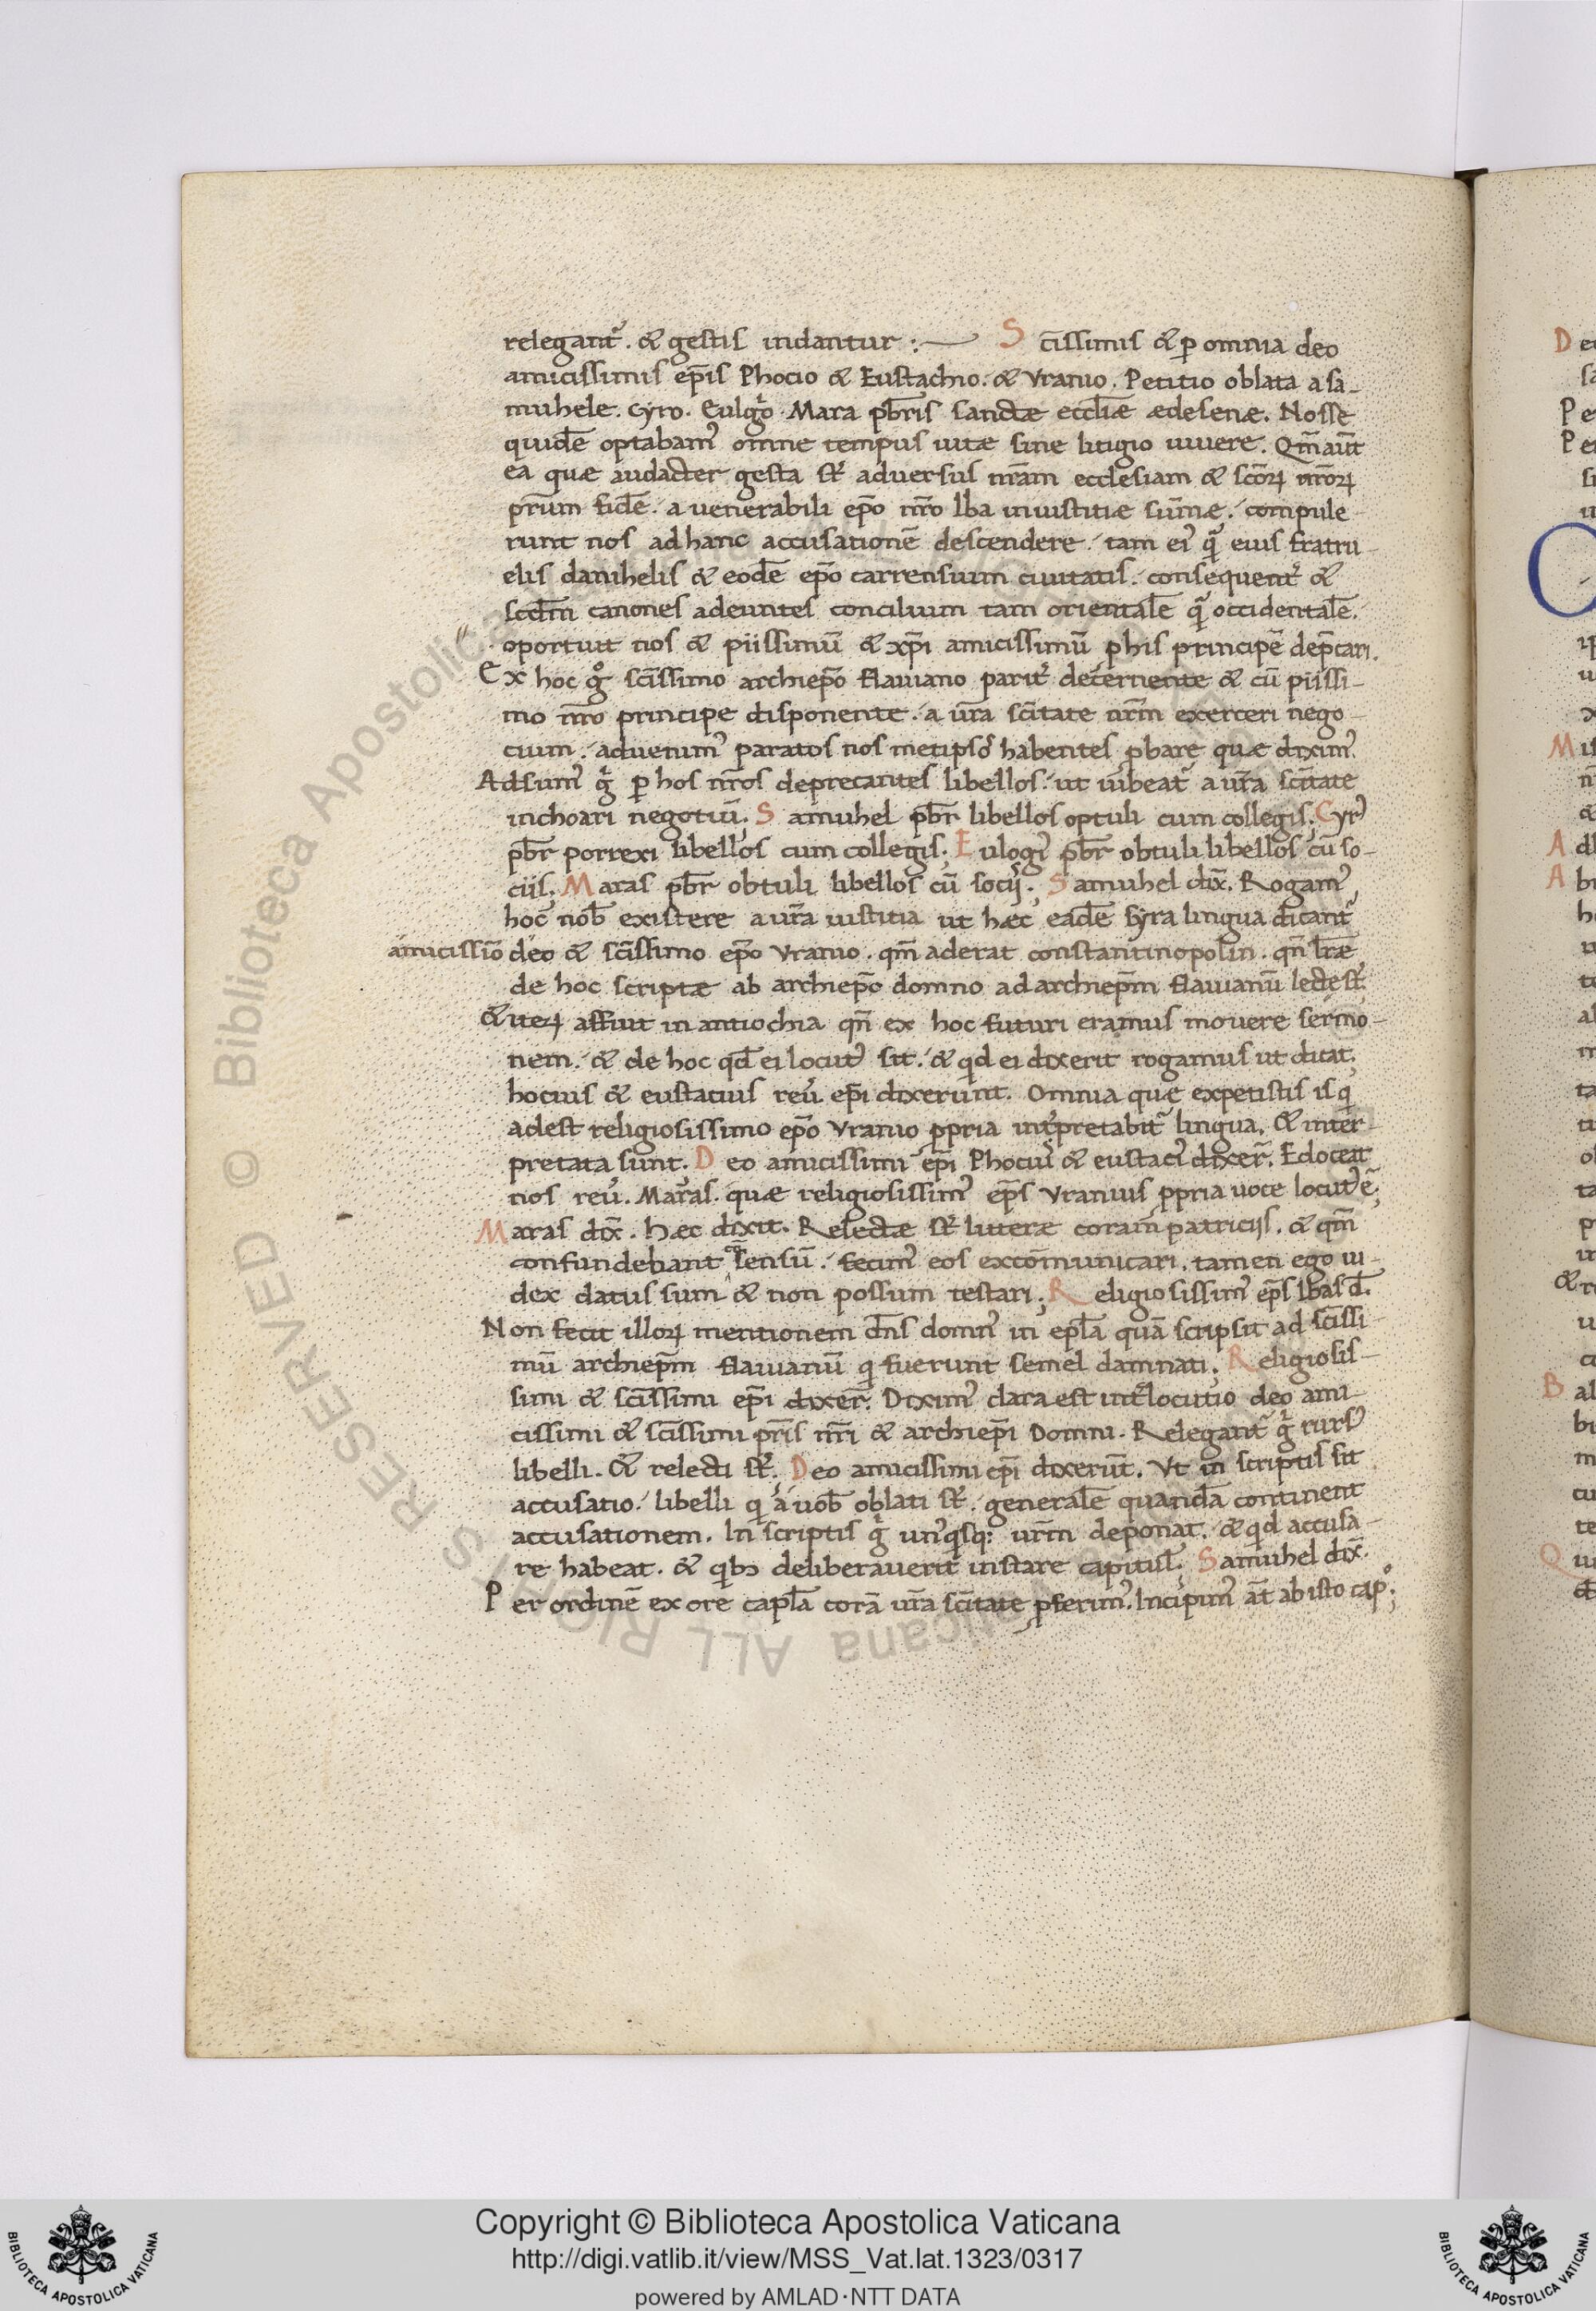 relegant᷑. & gestis indantur :— S c̄issimis & ꝑ omnia deo
amicissimis ep̄is Phocio & Eustachio. & Vranio. Petitio oblata a sa-
muhele. Cyro. Eulgͦo Mara pb̄ris sanctæ eccl̄iæ ædesenæ. Nosse
quidē optabamꝰ omne tempus uitæ sine litigio uiuere. Qm̄ aut̄
ea quæ audacter gesta st᷑ aduersus nr̄am ecclesiam & sc̄oꝝ nr̄oꝝ
pr̄um fidē. a uenerabili ep̄o nr̄o Iba iniustitiæ sum̄æ. compule
runt nos ad hanc accusationē descendere. tam eiꝰ q̄ eius fratru-
elis danihelis & eodē ep̄o carrensium ciuitatis. consequent᷑ &
scd̄m canones adeuntes concilium tam orientalē q̄ occidentalē.
oportuit nos & piissimū & xp̄i amicissimū phis principē dep̄cari.
Ex hoc gͦ sc̄issimo archiep̄o flauiano parit᷑ decernente & cū piissi-
mo nr̄o principe disponente. a ur̄a sc̄itate nr̄m exerceri nego-
cium. aduenimꝰ paratos nos metipsoꝰ habentes ꝓbare quæ diximꝰ
Adsumꝰ gͥ ꝑ hos nr̄os deprecantes libellos. ut iubeat᷑ a ur̄a sc̄itate
inchoari negotiū; S amuhel pb̄r libellos optuli cum collegis; Cyrꝰ
pb̄r porrexi libellos cum collegis. E ulogiꝰ pb̄r obtuli libellos cū so-
ciis. M aras pb̄r obtuli libellos cū socijs. S amuhel dix̄. Rogamꝰ
hoc nob̄ existere a ur̄a iustitia ut hæc eadē syra lingua dicant᷑
amicissīo deo & sc̄issimo ep̄o Vranio. qm̄ aderat constantinopolin. qn̄ lr̄æ
de hoc scriptæ ab archiep̄o domno ad archiep̄m flauianū lectę st᷑.
& iteꝝ affuit in antiochia qn̄ ex hoc futuri eramus mouere sermo-
nem. & de hoc qd̄ ei locutꝰ sit. & qid ei dixerit rogamus ut dicat.
hocius & eustacius reu᷑ ep̄i dixerunt. Omnia que expetistis is q
adest religiosissimo ep̄o Vranio ꝓpria int᷑pretabit᷑ lingua. & inter
pretata sunt. D eo amicissimi ep̄i Phociꝰ & eustaciꝰ dixer̄. Edoceat
nos reu᷑. Maras. quæ religiosissimꝰ ep̄s Vranius ꝓpria uoce locutꝰ ē;
M aras dix̄. Hæc dixit. Relectæ st᷑ litteræ coram patricijs. & qm̄
confundebant sensū. fecimꝰ eos excōmunicari. tamen ego iu-
dex datus sum & non possum testari; R eligiosissimꝰ ep̄s Ibas d̄.
Non fecit illoꝝ mentionem dn̄s domnꝰ in epl̄a quā scripsit ad sc̄issi-
mū archiep̄m flauianū qi fuerunt semel damnati; R eligiosis-
simi & sc̄issimi ep̄i dixer̄. Diximꝰ clara est int᷑locutio deo ami-
cissimi & sc̄issimi pr̄is nr̄i & archiep̄i Domni. Relegant᷑ gͥ rursꝰ
libelli. & relecti st᷑. D eo amicissimi ep̄i dixerūt. Vt in scriptis sit
accusatio. libelli qi a uob̄ oblati st᷑. generalē quandā continent
accusationem. In scriptis gͥ unꝰqisq; ur̄m deponat. & qid accusa-
re habeat. & qibꝫ deliberauerit instare capitul̄. S amuhel dix̄.
P er ordinē ex ore capl̄a corā ur̄a sc̄itate ꝓferimꝰ. Incipimꝰ āt ab isto capͦ;
Copyright © Biblioteca Apostolica Vaticana
http://digi.vatlib.it/view/MSS_Vat.lat.1323/0317
powered by AMLAD·NTT DATA